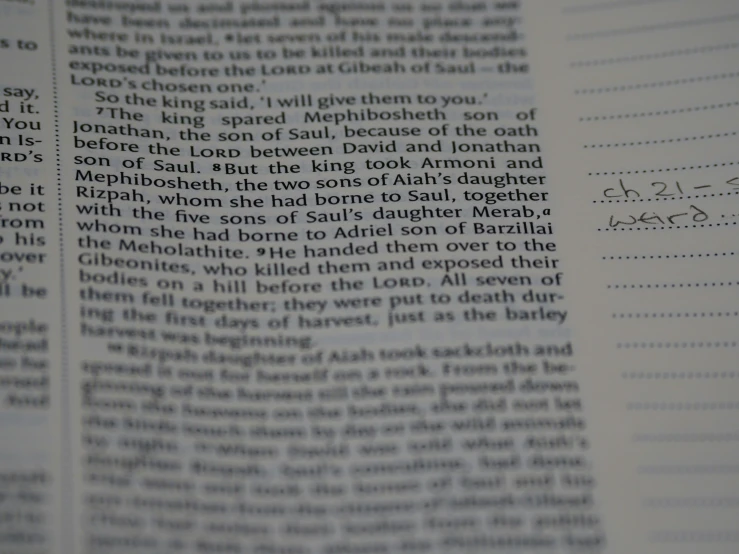 destroyed us and plotted against us so that we
have been decimated and have no place any-
where in Israel, 6let seven of his male descend-
ants be given to us to be killed and their bodies
exposed before the LORD at Gibeah of Saul – the
LORD's chosen one.'
So the king said, 'I will give them to you.'
7The king spared Mephibosheth son of
Jonathan, the son of Saul, because of the oath
before the LORD between David and Jonathan
son of Saul. 8But the king took Armoni and
Mephibosheth, the two sons of Aiah's daughter
Rizpah, whom she had borne to Saul, together
with the five sons of Saul's daughter Merab,a
whom she had borne to Adriel son of Barzillai
the Meholathite. 9He handed them over to the
Gibeonites, who killed them and exposed their
bodies on a hill before the LORD. All seven of
them fell together; they were put to death dur-
ing the first days of harvest, just as the barley
harvest was beginning.
10Rizpah daughter of Aiah took sackcloth and
spread it out for herself on a rock. From the be-
ginning of the harvest till the rain poured down
from the heavens on the bodies, she did not let
the birds touch them by day or the wild animals
by night. 11When David was told what Aiah's
daughter Rizpah, Saul's concubine, had done,
s to
say,
d it.
You
n Is-
RD'S
be it
not
rom
his
over
y.'
ll be
ople
ch 21 –
weird